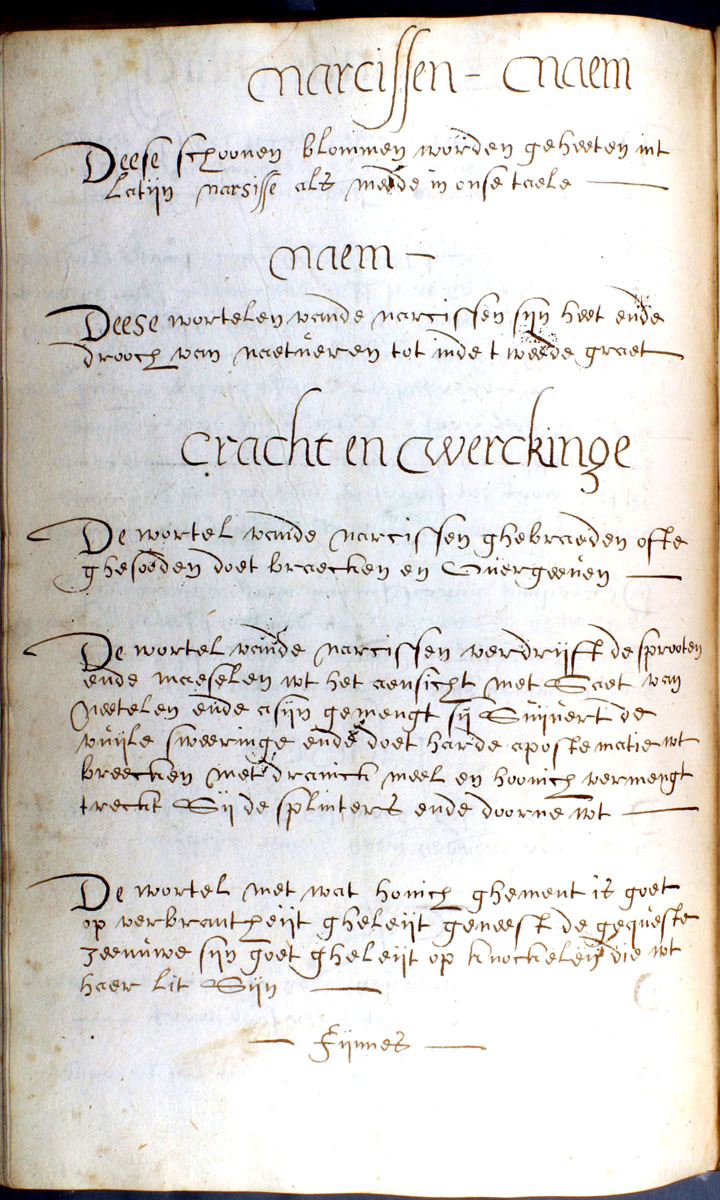 Narcissen - Naem
Deese schoonen blommen worden geheeten int
Latijn narsisse als mede in onse taele
Naem
Deese wortelen vande narcissen sijn heet ende
drooch van naetueren tot inde tweede graet
Cracht en Werckinge
De wortel vande narcissen ghebraeden ofte
ghesoeden doet braecken en overgeeven
De wortel vande narcissen verdrijft de sprooten
ende maeselen wt het aensicht met Saet van
Neetelen ende asijn gemengt sij Suijvert de
vuijle sweeringe ende doet harde apostematie wt
breecken met dranck meel en hoonich vermengt
treckt Sij de splinters ende doorne wt
De wortel met wat honich ghement is goet
op verbrantheijt gheleijt geneest de gequeste
zeenuwe sijn goet gheleijt op knockelen die wt
haer lit Sijn
Fijnnes